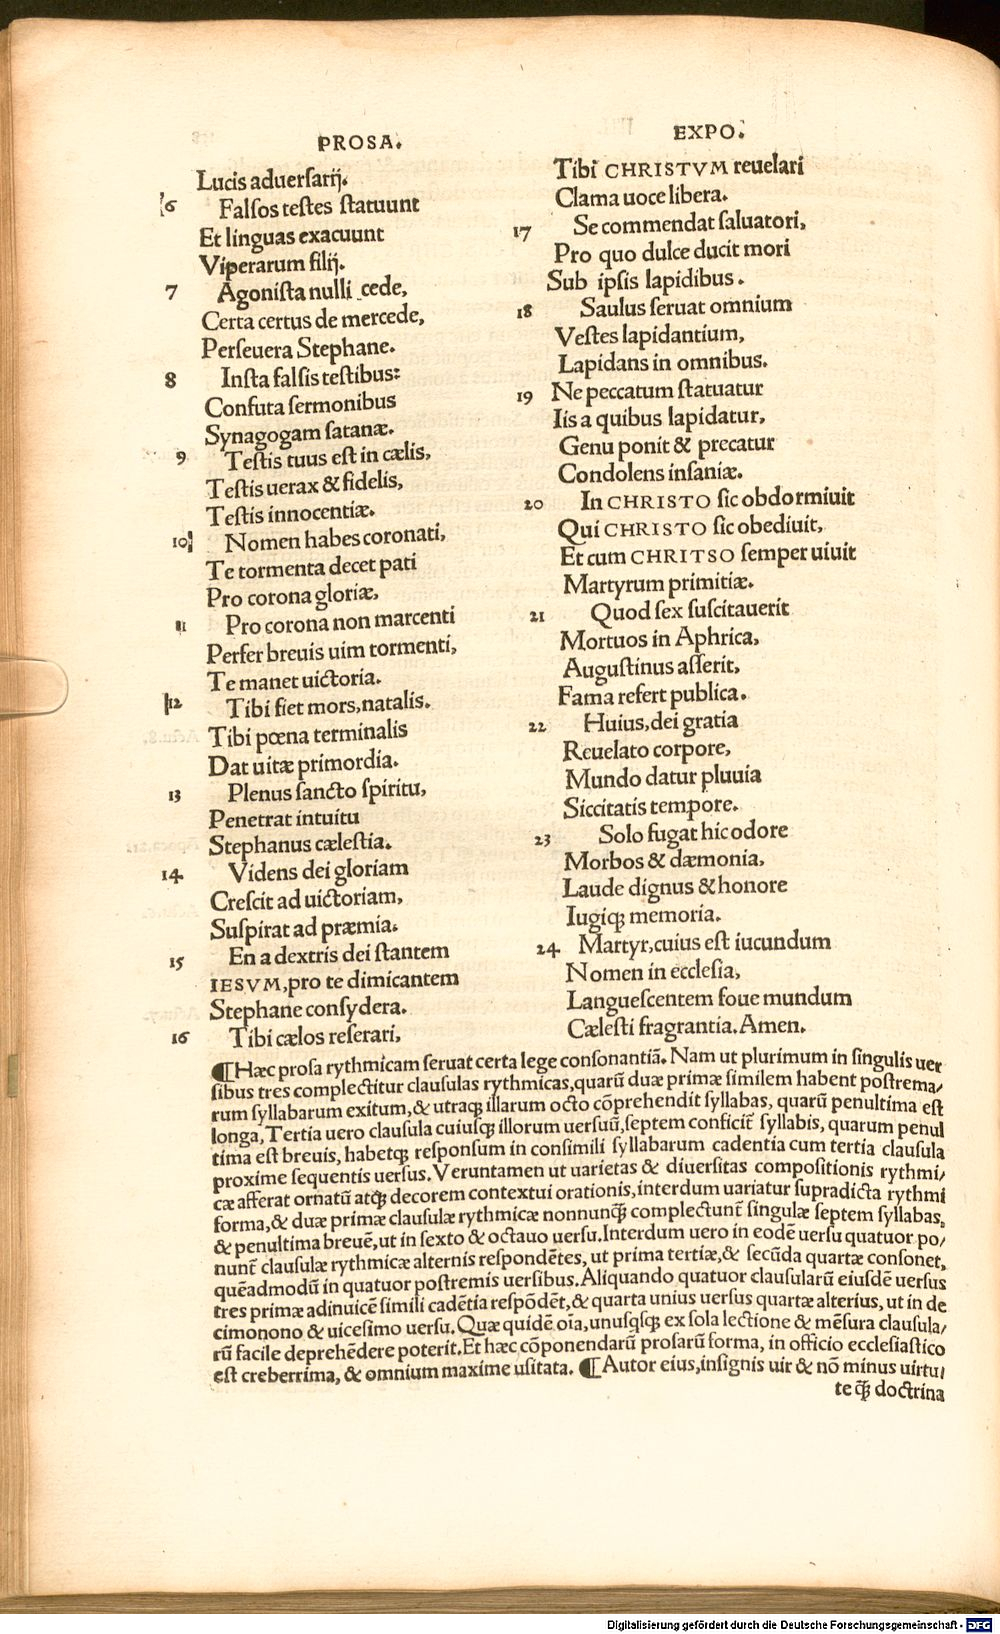 PROSA.
Lucis aduersarij.
6 Falsos testes statuunt
Et linguas exacuunt
Viperarum filij.
7 Agonista nulli cede,
Certa certus de mercede,
Perseuera Stephane.
8 Insta falsis testibus:
Confuta sermonibus
Synagogam satanæ.
9 Testis tuus est in cælis,
Testis uerax & fidelis,
Testis innocentiæ.
10 Nomen habes coronati,
Te tormenta decet pati
Pro corona gloriæ,
11 Pro corona non marcenti
Perfer breuis uim tormenti,
Te manet uictoria.
12 Tibi fiet mors, natalis.
Tibi pœna terminalis
Dat uitæ primordia.
13 Plenus sancto spiritu,
Penetrat intuitu
Stephanus cælestia.
14 Videns dei gloriam
Crescit ad uictoriam,
Suspirat ad præmia.
15 En a dextris dei stantem
IESVM, pro te dimicantem
Stephane consydera.
16 Tibi cælos reserari,
EXPO.
Tibi CHRISTVM reuelari
Clama uoce libera.
17 Se commendat saluatori,
Pro quo dulce ducit mori
Sub ipsis lapidibus.
18 Saulus seruat omnium
Vestes lapidantium,
Lapidans in omnibus.
19 Ne peccatum statuatur
Iis a quibus lapidatur,
Genu ponit & precatur
Condolens insaniæ.
20 In CHRISTO sic obdormiuit
Qui CHRISTO sic obediuit,
Et cum CHRITSO semper uiuit
Martyrum primitiæ.
21 Quod sex suscitauerit
Mortuos in Aphrica,
Augustinus asserit,
Fama refert publica.
22 Huius, dei gratia
Reuelato corpore,
Mundo datur pluuia
Siccitatis tempore.
23 Solo fugat hic odore
Morbos & dæmonia,
Laude dignus & honore
Iugiq; memoria.
24 Martyr, cuius est iucundum
Nomen in ecclesia,
Languescentem foue mundum
Cælesti fragrantia. Amen.
¶Hæc prosa rythmicam seruat certa lege consonantiā. Nam ut plurimum in singulis uer
sibus tres complectitur clausulas rythmicas, quarū duæ primæ similem habent postrema/
rum syllabarum exitum, & utraq; illarum octo cōprehendit syllabas, quarū penultima est
longa, Tertia uero clausula cuiusq; illorum uersuū, septem conficit̄ syllabis, quarum penul
tima est breuis, habetq; responsum in consimili syllabarum cadentia cum tertia clausula
proxime sequentis uersus. Veruntamen ut uarietas & diuersitas compositionis rythmi/
cæ afferat ornatū atq; decorem contextui orationis, interdum uariatur supradicta rythmi
forma, & duæ primæ clausulæ rythmicæ nonnunq̄ complectunt̄ singulæ septem syllabas,
& penultima breuē, ut in sexto & octauo uersu. Interdum uero in eodē uersu quatuor po/
nunt̄ clausulæ rythmicæ alternis respondētes, ut prima tertiæ, & secūda quartæ consonet,
quēadmodū in quatuor postremis uersibus. Aliquando quatuor clausularū eiusdē uersus
tres primæ adinuicē simili cadētia respōdēt, & quarta unius uersus quartæ alterius, ut in de
cimonono & uicesimo uersu. Quæ quidē oīa, unusqsq; ex sola lectione & mēsura clausula/
rū facile deprehēdere poterit. Et hæc cōponendarū prosarū forma, in officio ecclesiastico
est creberrima, & omnium maxime usitata. ¶Autor eius, insignis uir & nō minus uirtu/
te q̄ doctrina
Digitalisierung gefördert durch die Deutsche Forschungsgemeinschaft - DFG